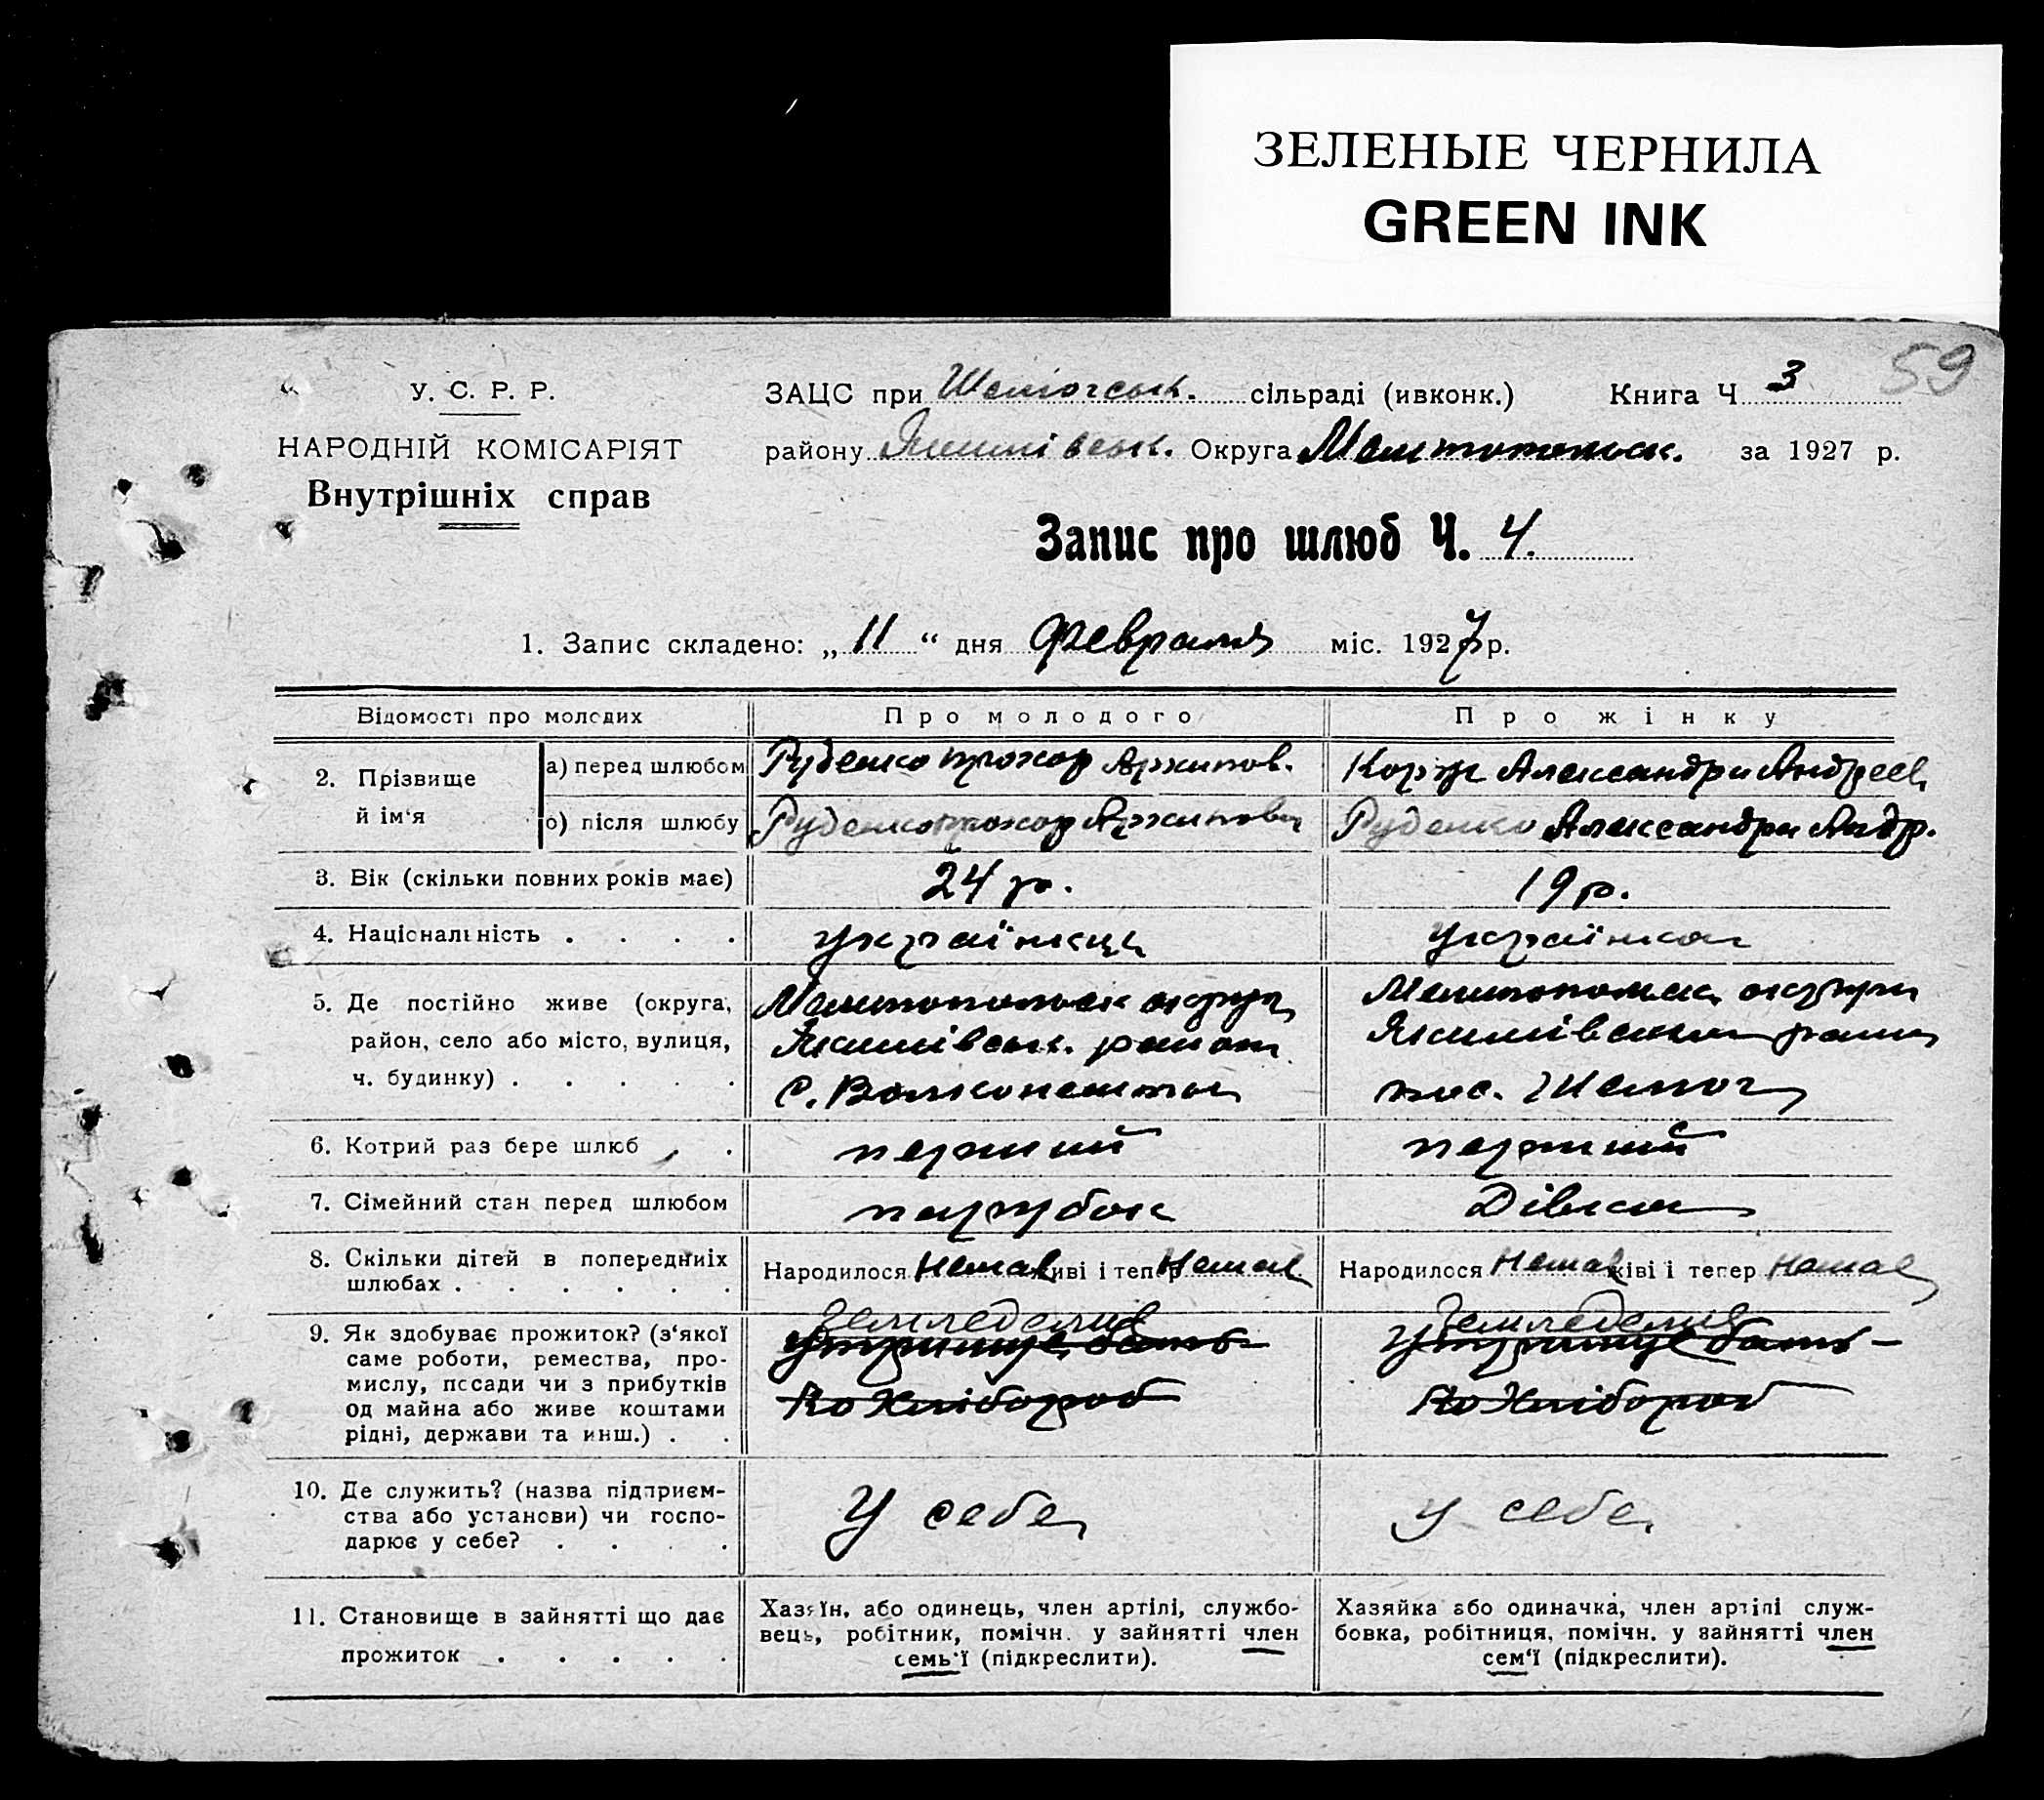 ЗЕЛЕНЫЕ ЧЕРНИЛА
GREEN INK
59
У. С. Р. Р.
НАРОДНІЙ КОМІСАРІЯТ
Внутрішніх справ
ЗАЦС при Шелюгськ. сільраді (ивконк.) Книга Ч 3
району Якимівськ. Округа Мелитопольск. за 1927 р.
Запис про шлюб Ч. 4.
1. Запис складено: „ 11 “ дня Февраля міс. 1927 р.
Відомості про молодих
Про молодого
Про жінку
2. Прізвище й ім‘я
а) перед шлюбом
Руденко Прохор Архипов.
Корж Александра Андреев
б) після шлюбу
Руденко Прохор Архипович
Руденко Александра Андр.
3. Вік (скільки повних років має)
24 р.
19 р.
4. Національність . . . .
українець
українка
5. Де постійно живе (округа, район, село або місто, вулиця, ч. будинку) . . . . .
Мелитопольск округи
Якимівськ. району
с.
Мелитопольск. округи
Якимівськи району
пос. Шелюги
6. Котрий раз бере шлюб . .
перший
перший
7. Сімейний стан перед шлюбом
парубок
Дівка
8. Скільки дітей в попередніх шлюбах . . . . . .
Народилося Немає живі і тепер Немає
Народилося Немає живі і тепер Немає
9. Як здобуває прожиток? (з‘якої
саме роботи, ремества, про-
мислу, посади чи з прибутків
од майна або живе коштами
рідні, держави та инш.) . .
Земледелие
Утримує бать-
ко Хлібороб
Земледелие
Утримує бать-
ко Хлібороб
10. Де служить? (назва підприєм-
ства або установи) чи госпо-
дарює у себе? . . . .
У себе
У себе
11. Становище в зайнятті що дає
прожиток . . . . .
Хазяїн, або одинець, член артілі, службо-
вець, робітник, помічн. у зайнятті член
семь‘ї (підкреслити).
Хазяйка або одиначка, член артілі служ-
бовка, робітниця, помічн. у зайнятті член
сем‘ї (підкреслити).